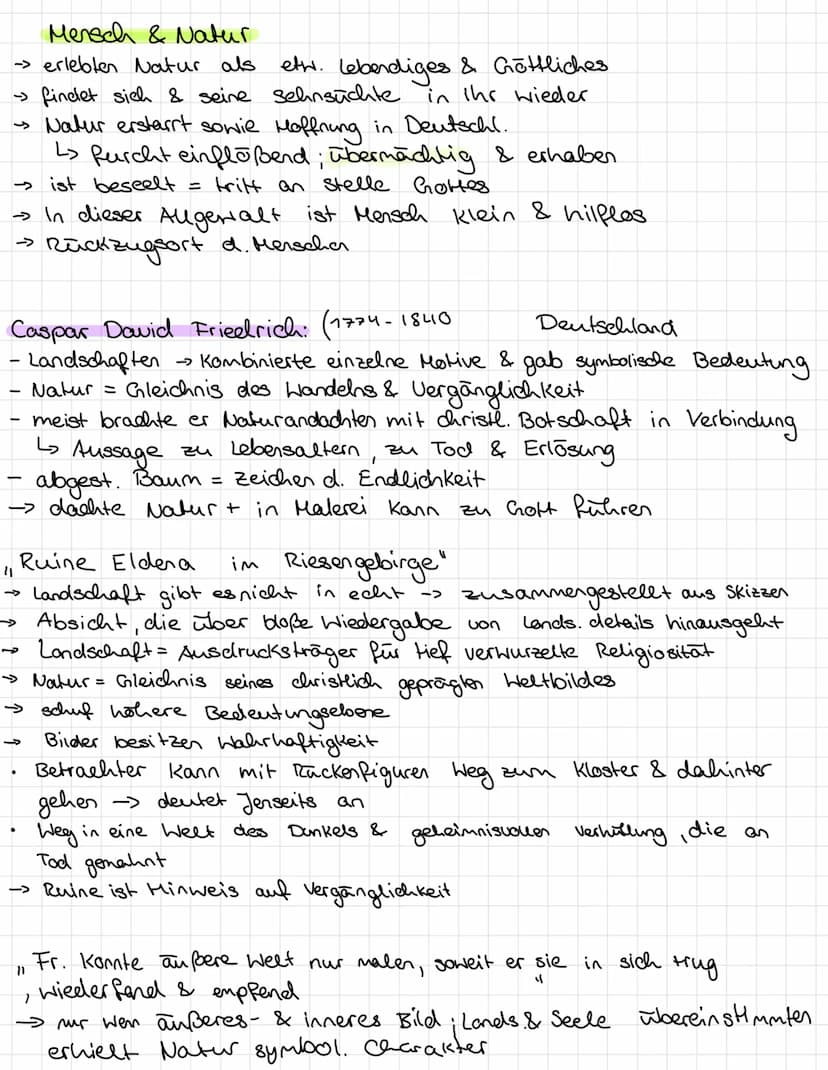 Mensch & Natur
→ erlebten Natur als etw. lebendiges & Göttliches
→ findet sich & seine Sehnsüchte in ihr wieder
→ Natur erstarrt sowie Hoffnung in Deutschl.
↳ furchteinflößend; übermächtig & erhaben
→ ist beseelt = tritt an stelle Gottes
→ In dieser Allgewalt ist Mensch klein & hilflos
→ Rückzugsort d. Menschen
Caspar David Friedrich: (1774-1840 Deutschland
- Landschaften → kombinierte einzelne Motive & gab symbolische Bedeutung
- Natur = Gleichnis des Wandelns & Vergänglichkeit
- meist brachte er Naturandachten mit christl. Botschaft in Verbindung
↳ Aussage zu Lebensaltern, zu Tod & Erlösung
- abgest. Baum = Zeichen d. Endlichkeit
→ dachte Natur + in Malerei kann zu Gott führen
„Ruine Eldena im Riesengebirge"
→ Landschaft gibt es nicht in echt -> zusammengestellt aus Skizzen
→ Absicht, die über bloße Wiedergabe von Lands. details hinausgeht
→ Landschaft = Ausdrucksträger für tief verwurzelte Religiosität
→ Natur = Gleichnis seines christlich geprägten Weltbildes
→ schuf höhere Bedeutungsebene
→ Bilder besitzen Wahrhaftigkeit
• Betrachter kann mit Rückenfiguren Weg zum Kloster & dahinter
gehen → deutet Jenseits an
• Weg in eine Welt des Dunkels & geheimnisvollen Verhüllung, die an
Tod gemahnt
→ Ruine ist Hinweis auf Vergänglichkeit
„Fr. konnte äußere Welt nur malen, soweit er sie in sich trug
, wiederfand & empfand"
→ nur wen äußeres- & inneres Bild; Lands. & Seele übereinstimmten
erhielt Natur symbol. Charakter